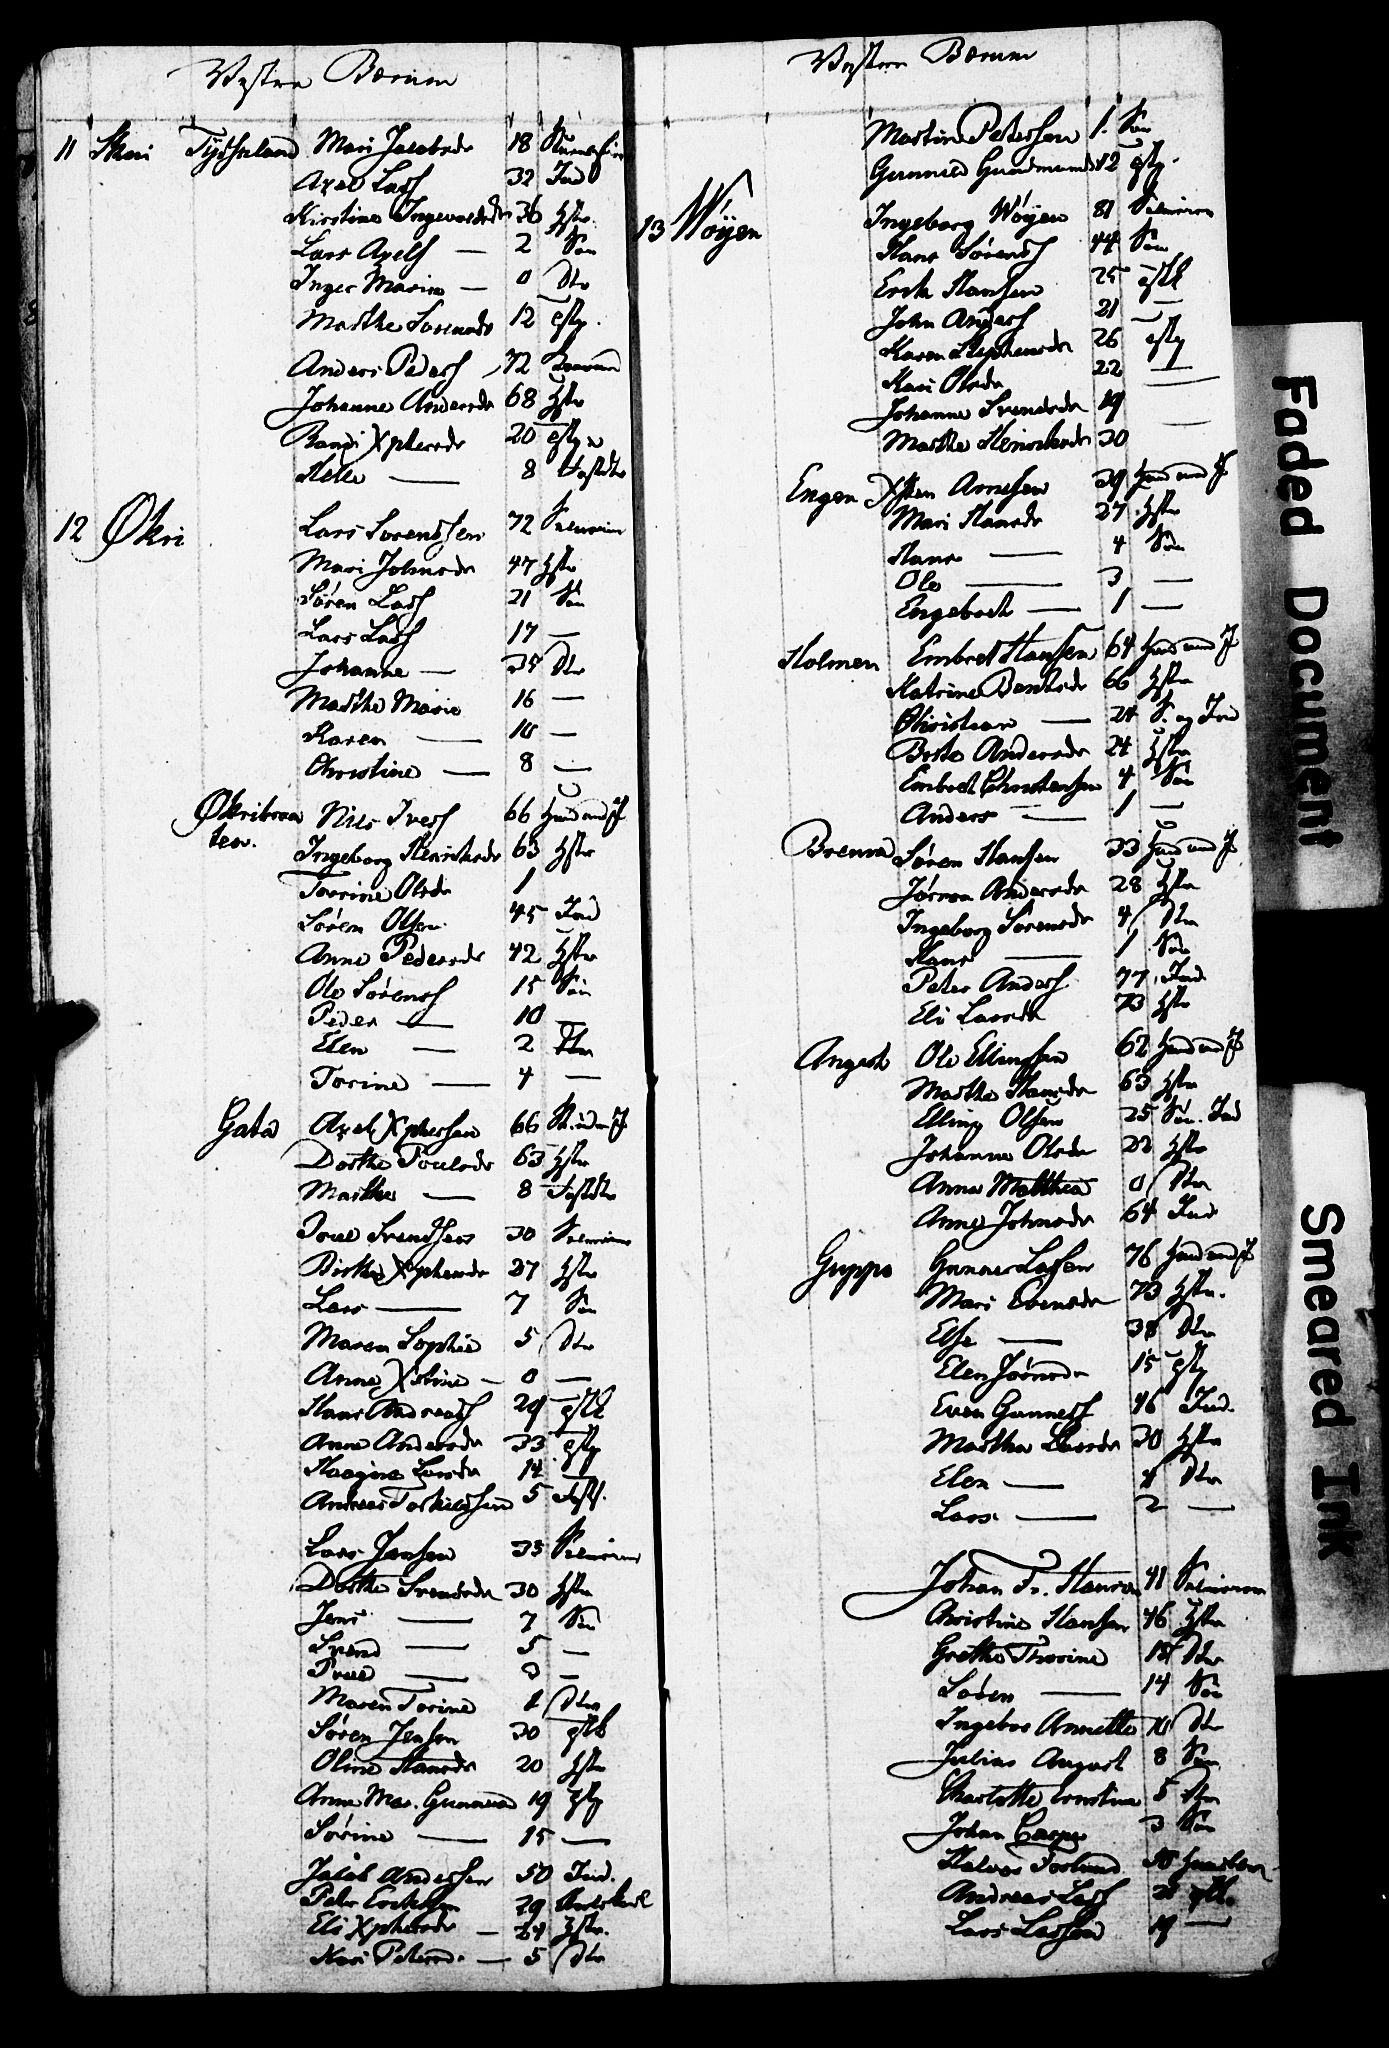 Vestre Bærum
11 Skui Tydskland Mari Jacobsdr 18
Axel Larsf 32 Ind
Kirstine Ingevorsdr 36 Hstr
Lars Axels — 2 Søn
Inger Marie — 0 Dtr
Marthe Sørensdr 12 qstp.
Anders Pedersf 72
Johanne Andersdr 68 Hstr
Randi Xphersdr 20
Helle — 8
12 Økri Lars Sørendsen 72 Selveier
Mari Johnsdr 47 Hstr
Søren Larsf 21 Søn
Lars Larsf 17 —
Johanne — 25 Dtr
Marthe Marie 16 —
Karen — 10 —
Christine — 8 —
Økribraa Nils Iversf 66 Huusmd m J
ten. Ingeborg Henriksdr 63 Hstr
Torine Olsdr 1
Søren Olsen 45 Ind
Anne Pedersdr 42 Hstr
Ole Sørensf 15 Søn
Peder — 10 —
Elen — 2 Dtr
Torine — 4 —
Gata Axel Xphersen 66
Dorthe Poulsdr 63 Hstr
Marthe — 8 Fostdtr
Poul Svendsen 30 Selveier
Birthe Xphersdr 27 Hstr
Lars — 7 Søn
Maren Sophie 5 Dtr
Anne Xstine — 0 —
Hans Andreasf 29 qstk
Anne Andersdr 33 qstp
Larsdr 14
Andreas Torkildsen 5 Fosts.
Lars Jensen 35 Selveier
Dorthe Svendsdr 30 Hstr
Jens — 7 Søn
Svend — 5 —
Poul — 3 —
Maren Torine 1 Dtr
Søren Jensen 30 qstk
Oline Hansdr 20 Hstr
Anne Mar. 19 qstp
Sørine — 15 —
Jacob Andersen 50 Ind.
Peder Eriksen 29
Eli Xphersdr — 24 Hstr.
Kari Petersd. — 5 Dtr
Vestre Bærum
Martin Petersen 1. Søn
Gunnild Gundmunds 12 qstp.
13 Wøyen Ingeborg Wøyen 81 Selveier
Hans Sørensf 44 Søn
Erik Hansen 25 qstk
John Andersf 21 —
Karen Stephensdr 26 qstp
Kari Olsdr 22 —
Johanne Svendsdr 19 —
Marthe Henriksdr 30 —
Engen Xsten Arnesen 39 Huusmd m J
Mari Hansdr 27 Hstr
Hans — 4 Søn
Ole — 3 —
Engebret — 1 —
Holmen Embret Hansen 64 Huusmd m J
Katrine Berntsdr 66 Hstr
Christian — 24 S. og Ind
Berte Andersdr 24 Hstr
Embret Christensen 4 Søn
Anders — 1 —
Brenna Søren Hansen 33 Huusmd m J
Jøran Andersdr 28 Hstr
Ingeborg Sørensdr 4 Dtr
Hans — 1 Søn
Peter Andersf 77 Ind.
Eli Larsdr 73 Hstr
Ole Ellingsen 62 Huusmd m J
Marthe Hansdr 63 Hstr
Elling Olsen 25 Søn. Ind
Johanne Olsdr 22 Hstr
Anne Matthea 0 Dtr
Anne Johnsdr 64 Ind
Guppe Gunner Larsen 76 Huusmd m J
Mari Evensdr 73 Hstr.
Else — 38 Dtr
Elen Jørnsdr 15 qstp
Even Gunnersf 46 Ind.
Marthe Larsdr 30 Hstr
Elen — 4 Dtr
Lars — 2 —
Johan Fr. Hansen 41 Selveier
Christine Hansen 46 Hstr
Grethe Thorine 18 Dtr
Søren — 14 Søn
Ingebor Annette 10 Dtr
Julius August 8 Søn
Charlotte Ernstine 5 Dtr
Johan Casper 3 Søn
Halvor Torlund 50
Andreas Larsf 21 qstk.
Lars Larsen 19 —
Faded Document
Smeared Ink